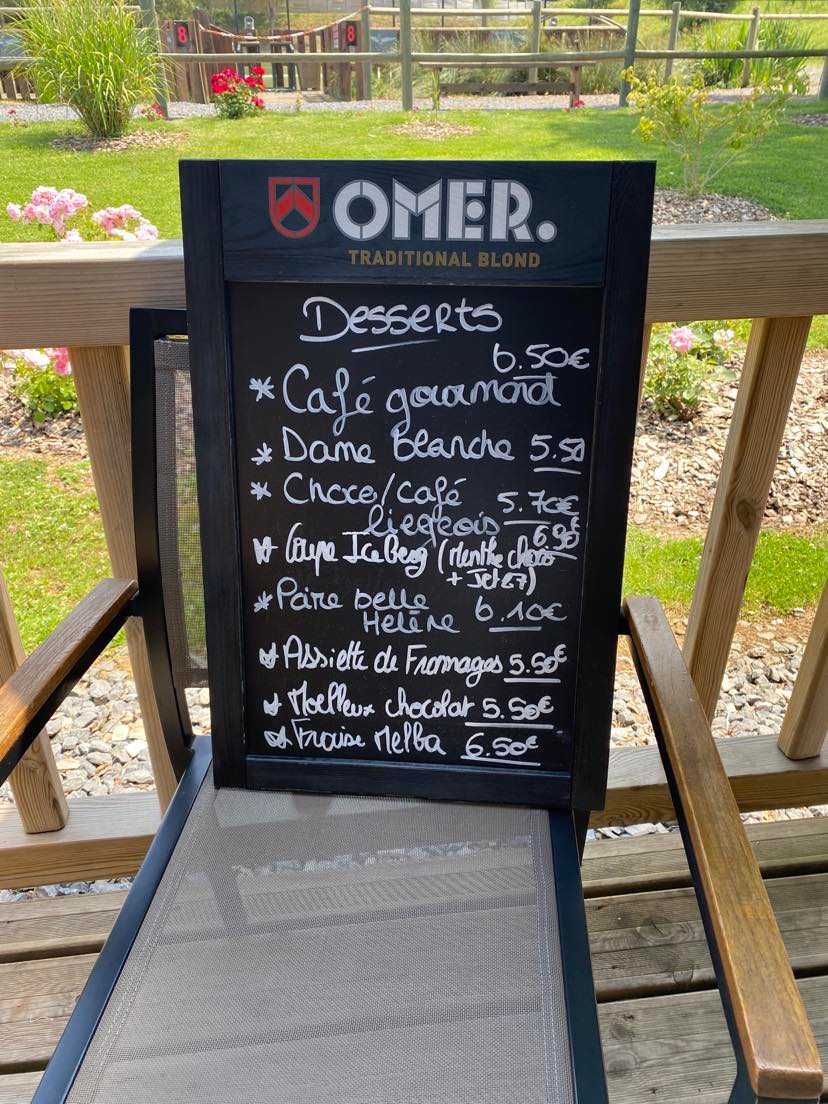 8
8
OMER.
TRADITIONAL BLOND
Desserts
6.50€
* Café gourmand
* Dame blanche 5.50
* Choco/café 5.70€
liegeois 6.90€
* Coupe IceBerg (Menthe choco
+ Jet 27)
* Poire belle
Helène 6.10€
* Assiette de Fromages 5.50€
* Moelleux chocolat 5.50€
* Fraise Melba 6.50€